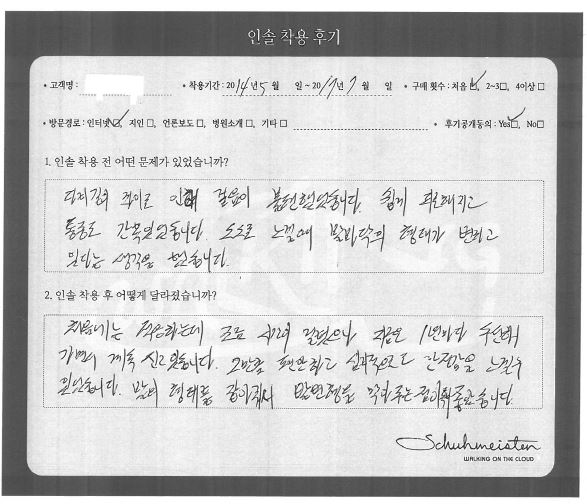 인솔 착용 후기
• 고객명 : • 착용기간 : 2014년 5월 일 ~ 2017년 7월 일 • 구매 횟수 : 처음 ☑, 2~3 □, 4이상 □
• 방문경로 : 인터넷 ☑, 지인 □, 언론보도 □, 병원소개 □, 기타 □ • 후기공개동의 : Yes ☑, No □
1. 인솔 착용 전 어떤 문제가 있었습니까?
다리길이 차이로 인해 걸음이 불편했었습니다. 쉽게 피로해지고
통증도 간혹 있었습니다. 스스로 느낌에 발바닥의 형태가 변하고
있다는 생각을 했습니다.
2. 인솔 착용 후 어떻게 달라졌습니까?
처음에는 적응하는데 조금 시간이 걸렸으나 지금은 1년마다
계속 신고 있습니다. 그만큼 편안하고 안정감을 느낄 수
있었습니다. 발의 형태를 잡아줘서 발변형을 막아주는 점이 좋습니다.
Schuhmeister
WALKING ON THE CLOUD